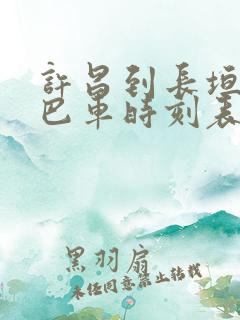 許昌到長垣
巴車時刻表
黑羽扇
未经同意禁止转载